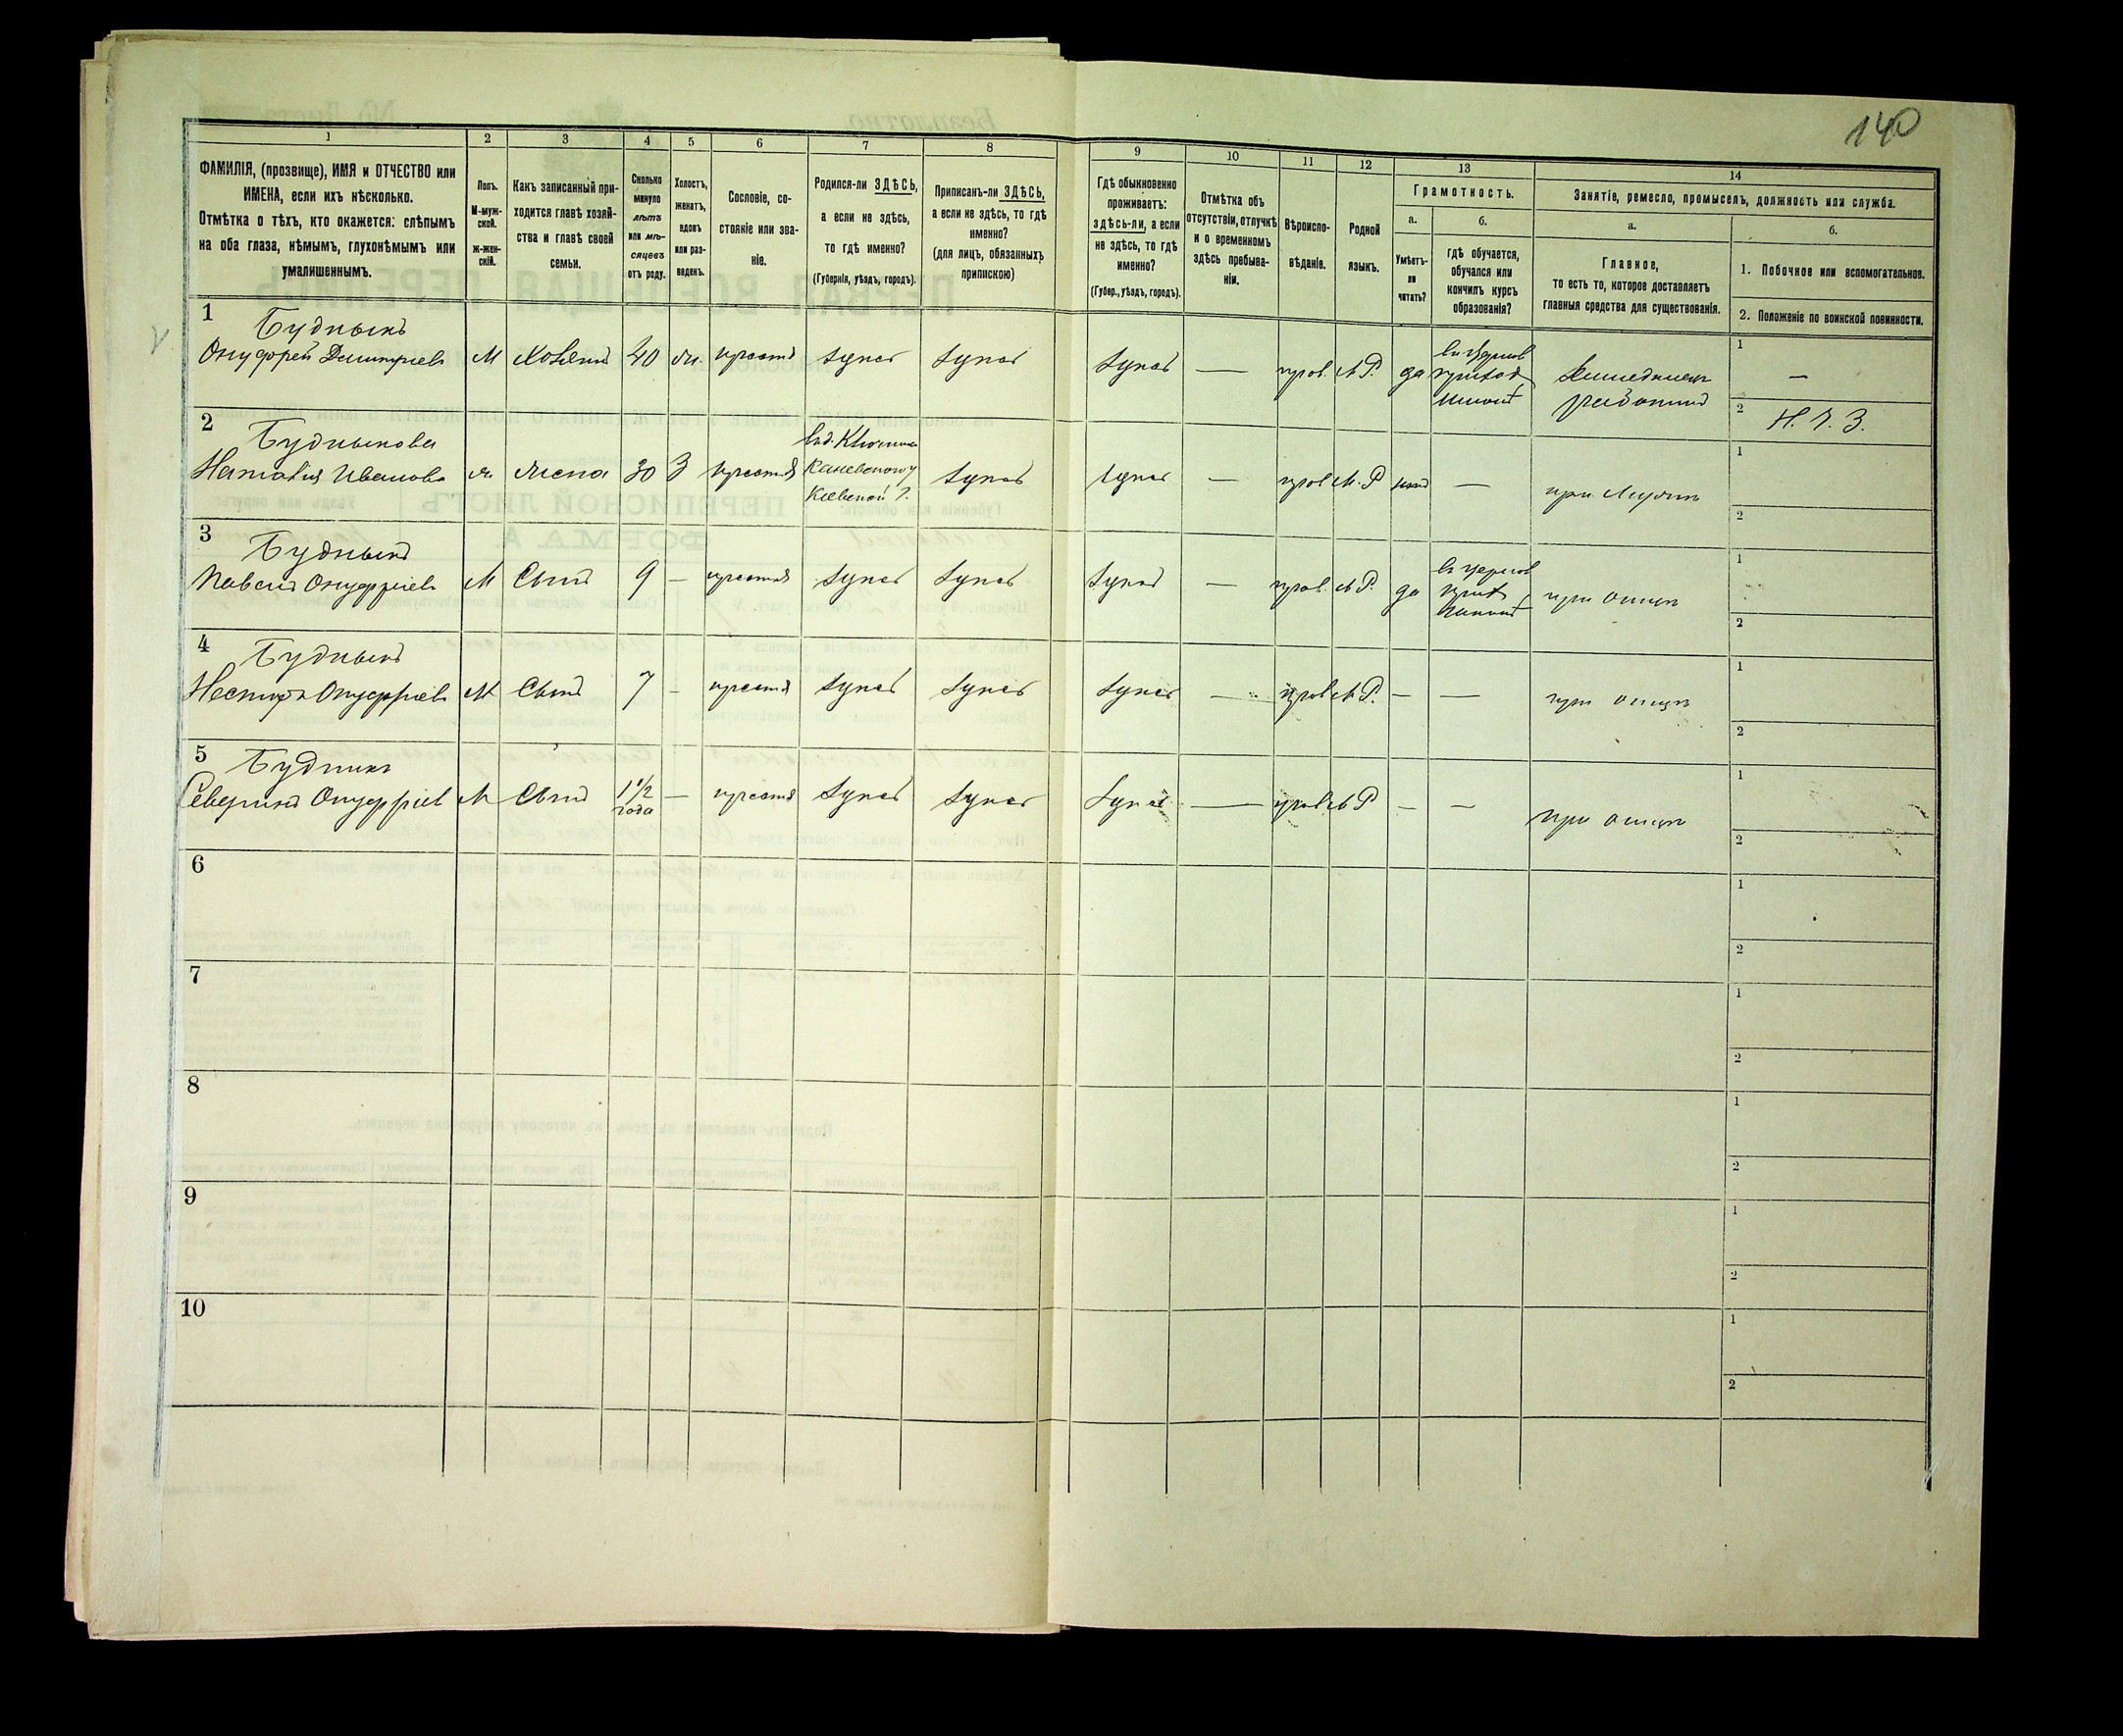 140
1
2
3
4
5
6
7
8
9
10
11
12
13
14
ФАМИЛІЯ, (прозвище), ИМЯ и ОТЧЕСТВО или
ИМЕНА, если ихъ нѣсколько.
Отмѣтка о тѣхъ, кто окажется: слѣпымъ
на оба глаза, нѣмымъ, глухонѣмымъ или
умалишеннымъ.
Полъ.
М-муж-
ской.
Ж-жен-
скій.
Какъ записанный при-
ходится главѣ хозяй-
ства и главѣ своей
семьи.
Сколько
минуло
лѣтъ
или мѣ-
сяцевъ
отъ роду.
Холостъ,
женатъ,
вдовъ
или раз-
веденъ.
Сословіе, со-
стояніе или зва-
ніе.
Родился-ли ЗДѢСЬ,
а если не здѣсь,
то гдѣ именно?
(Губернія, уѣздъ, городъ).
Приписанъ-ли ЗДѢСЬ,
а если не здѣсь, то гдѣ
именно?
(для лицъ, обязанныхъ
припискою)
Гдѣ обыкновенно
проживаетъ:
здѣсь-ли, а если
не здѣсь, то гдѣ
именно?
(Губер., уѣздъ, городъ).
Отмѣтка объ
отсутствіи, отлучкѣ
и о временномъ
здѣсь пребыва-
ніи.
Вѣроиспо-
вѣданіе.
Родной
языкъ.
Грамотность.
а.
б.
Умѣетъ-
ли
читать?
гдѣ обучается,
обучался или
кончилъ курсъ
образованія?
Занятіе, ремесло, промыселъ, должность или служба.
а.
б.
Главное,
то есть то, которое доставляетъ
главныя средства для существованія.
1. Побочное или вспомогательное.
2. Положеніе по воинской повинности.
1
Будныкъ
Онуфрей Дмитріевъ
М
Хозяинъ
40
жн.
крестъ
тутъ
тутъ
тутъ
—
прав.
М Р.
да
приход
1
—
2
Н. Ч. З.
2
Будныкова
Наталія Иванова
ж
жена
30
З
крестья
Каневского у
Кіевской г.
тутъ
тутъ
—
прав
М. Р
—
при мужѣ
1
2
3
Будныкъ
Онуфріевъ
М
Сынъ
9
—
крестья
тутъ
тутъ
тутъ
—
прав.
М Р.
да
при отцѣ
1
2
4
Будныкъ
Онуфріевъ
М
Сынъ
7
-
крестья
тутъ
тутъ
тутъ
—
прав
М Р.
—
—
при отцѣ
1
2
5
Будныкъ
Северинъ Онуфріев
М
Сынъ
1 1/2
года
—
крестья
тутъ
тутъ
тутъ
—
прав
М Р
—
—
при отцѣ
1
2
6
1
2
7
1
2
8
1
2
9
1
2
10
1
2